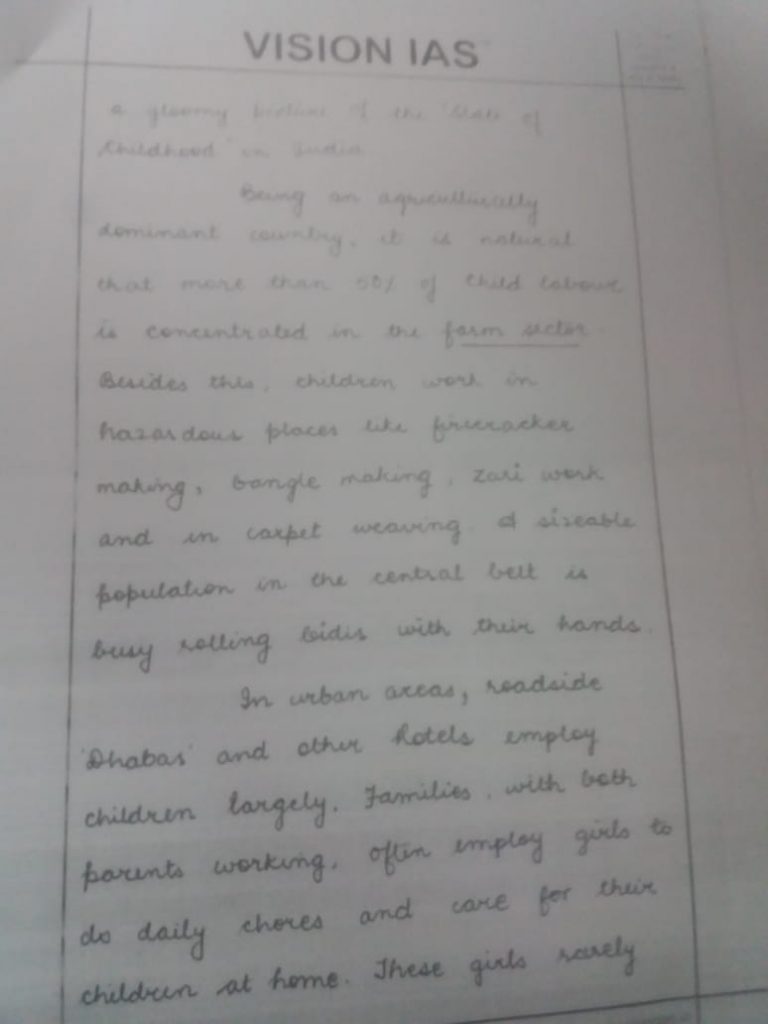 VISION IAS
a gloomy picture of the "State of
Childhood" in India.
Being an agriculturally
dominant country, it is natural
that more than 50% of child labour
is concentrated in the farm sector.
Besides this, children work in
hazardous places like firecracker
making, bangle making, zari work
and in carpet weaving. A sizeable
population in the central belt is
busy rolling bidis with their hands.
In urban areas, roadside
'Dhabas' and other hotels employ
children largely. Families, with both
parents working, often employ girls to
do daily chores and care for their
children at home. These girls rarely